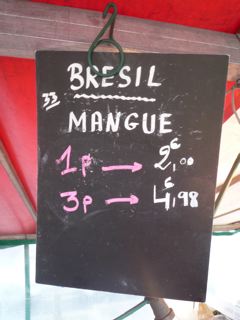 BRESIL
33
MANGUE
1p → 2€,00
3p → 4€,98